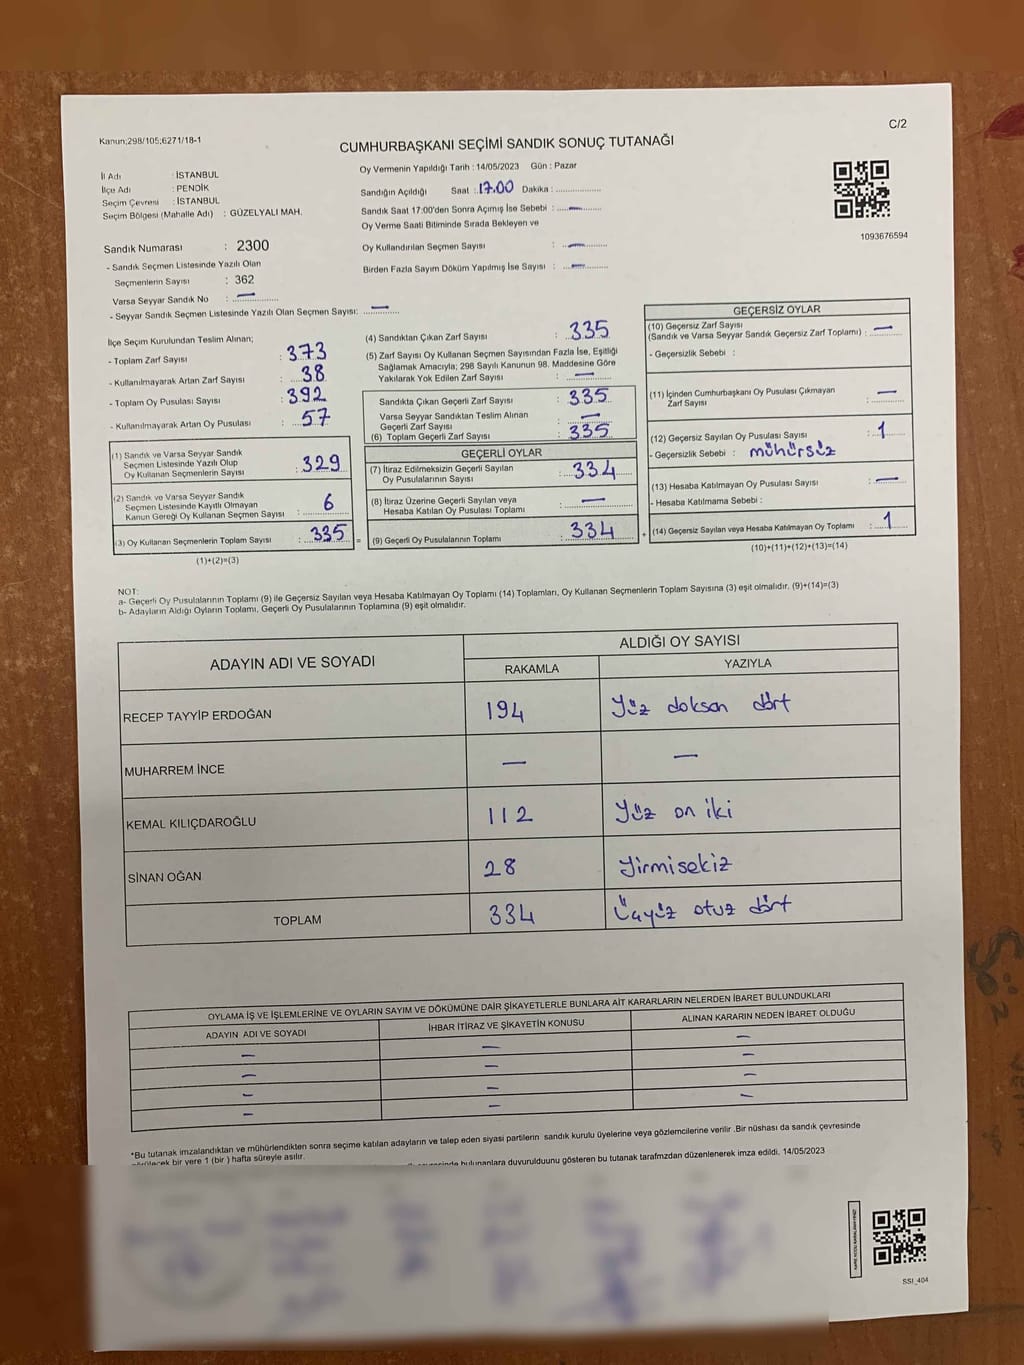 C/2
Kanun;298/105;6271/18-1
CUMHURBAŞKANI SEÇİMİ SANDIK SONUÇ TUTANAĞI
İl Adı : İSTANBUL
İlçe Adı : PENDİK
Seçim Çevresi : İSTANBUL
Seçim Bölgesi (Mahalle Adı) : GÜZELYALI MAH.
Sandık Numarası : 2300
- Sandık Seçmen Listesinde Yazılı Olan
Seçmenlerin Sayısı : 362
Varsa Seyyar Sandık No : —
- Seyyar Sandık Seçmen Listesinde Yazılı Olan Seçmen Sayısı: —
Oy Vermenin Yapıldığı Tarih : 14/05/2023 Gün : Pazar
Sandığın Açıldığı Saat : 17.00 Dakika : ............
Sandık Saat 17:00'den Sonra Açımış İse Sebebi : —
Oy Verme Saati Bitiminde Sırada Bekleyen ve
Oy Kullandırılan Seçmen Sayısı : —
Birden Fazla Sayım Döküm Yapılmış İse Sayısı : —
1093676594
İlçe Seçim Kurulundan Teslim Alınan;
- Toplam Zarf Sayısı : 373
- Kullanılmayarak Artan Zarf Sayısı : 38
- Toplam Oy Pusulası Sayısı : 392
- Kullanılmayarak Artan Oy Pusulası : 57
(1) Sandık ve Varsa Seyyar Sandık
Seçmen Listesinde Yazılı Olup
Oy Kullanan Seçmenlerin Sayısı : 329
(2) Sandık ve Varsa Seyyar Sandık
Seçmen Listesinde Kayıtlı Olmayan
Kanun Gereği Oy Kullanan Seçmen Sayısı : 6
(3) Oy Kullanan Seçmenlerin Toplam Sayısı : 335
(1)+(2)=(3)
(4) Sandıktan Çıkan Zarf Sayısı : 335
(5) Zarf Sayısı Oy Kullanan Seçmen Sayısından Fazla İse, Eşitliği
Sağlamak Amacıyla; 298 Sayılı Kanunun 98. Maddesine Göre
Yakılarak Yok Edilen Zarf Sayısı : —
Sandıkta Çıkan Geçerli Zarf Sayısı : 335
Varsa Seyyar Sandıktan Teslim Alınan
Geçerli Zarf Sayısı : —
(6) Toplam Geçerli Zarf Sayısı : 335
GEÇERLİ OYLAR
(7) İtiraz Edilmeksizin Geçerli Sayılan
Oy Pusulalarının Sayısı : 334
(8) İtiraz Üzerine Geçerli Sayılan veya
Hesaba Katılan Oy Pusulası Toplamı : —
= (9) Geçerli Oy Pusulalarının Toplamı : 334
GEÇERSİZ OYLAR
(10) Geçersiz Zarf Sayısı
(Sandık ve Varsa Seyyar Sandık Geçersiz Zarf Toplamı) : —
- Geçersizlik Sebebi :
(11) İçinden Cumhurbaşkanı Oy Pusulası Çıkmayan
Zarf Sayısı : —
(12) Geçersiz Sayılan Oy Pusulası Sayısı : 1
- Geçersizlik Sebebi : mühürsüz
(13) Hesaba Katılmayan Oy Pusulası Sayısı : —
- Hesaba Katılmama Sebebi :
+ (14) Geçersiz Sayılan veya Hesaba Katılmayan Oy Toplamı : 1
(10)+(11)+(12)+(13)=(14)
NOT:
a- Geçerli Oy Pusulalarının Toplamı (9) ile Geçersiz Sayılan veya Hesaba Katılmayan Oy Toplamı (14) Toplamları, Oy Kullanan Seçmenlerin Toplam Sayısına (3) eşit olmalıdır. (9)+(14)=(3)
b- Adayların Aldığı Oyların Toplamı, Geçerli Oy Pusulalarının Toplamına (9) eşit olmalıdır.
ADAYIN ADI VE SOYADI
ALDIĞI OY SAYISI
RAKAMLA YAZIYLA
RECEP TAYYİP ERDOĞAN 194 Yüz doksan dört
MUHARREM İNCE — —
KEMAL KILIÇDAROĞLU 112 Yüz on iki
SİNAN OĞAN 28 Yirmisekiz
TOPLAM 334 Üçyüz otuz dört
OYLAMA İŞ VE İŞLEMLERİNE VE OYLARIN SAYIM VE DÖKÜMÜNE DAİR ŞİKAYETLERLE BUNLARA AİT KARARLARIN NELERDEN İBARET BULUNDUKLARI
ADAYIN ADI VE SOYADI İHBAR İTİRAZ VE ŞİKAYETİN KONUSU ALINAN KARARIN NEDEN İBARET OLDUĞU
— — —
— — —
— — —
— — —
*Bu tutanak imzalandıktan ve mühürlendikten sonra seçime katılan adayların ve talep eden siyasi partilerin sandık kurulu üyelerine veya gözlemcilerine verilir .Bir nüshası da sandık çevresinde
bir yere 1 (bir ) hafta süreyle asılır.
bulunanlara duyurulduunu gösteren bu tutanak tarafmzdan düzenlenerek imza edildi. 14/05/2023
SSI_404